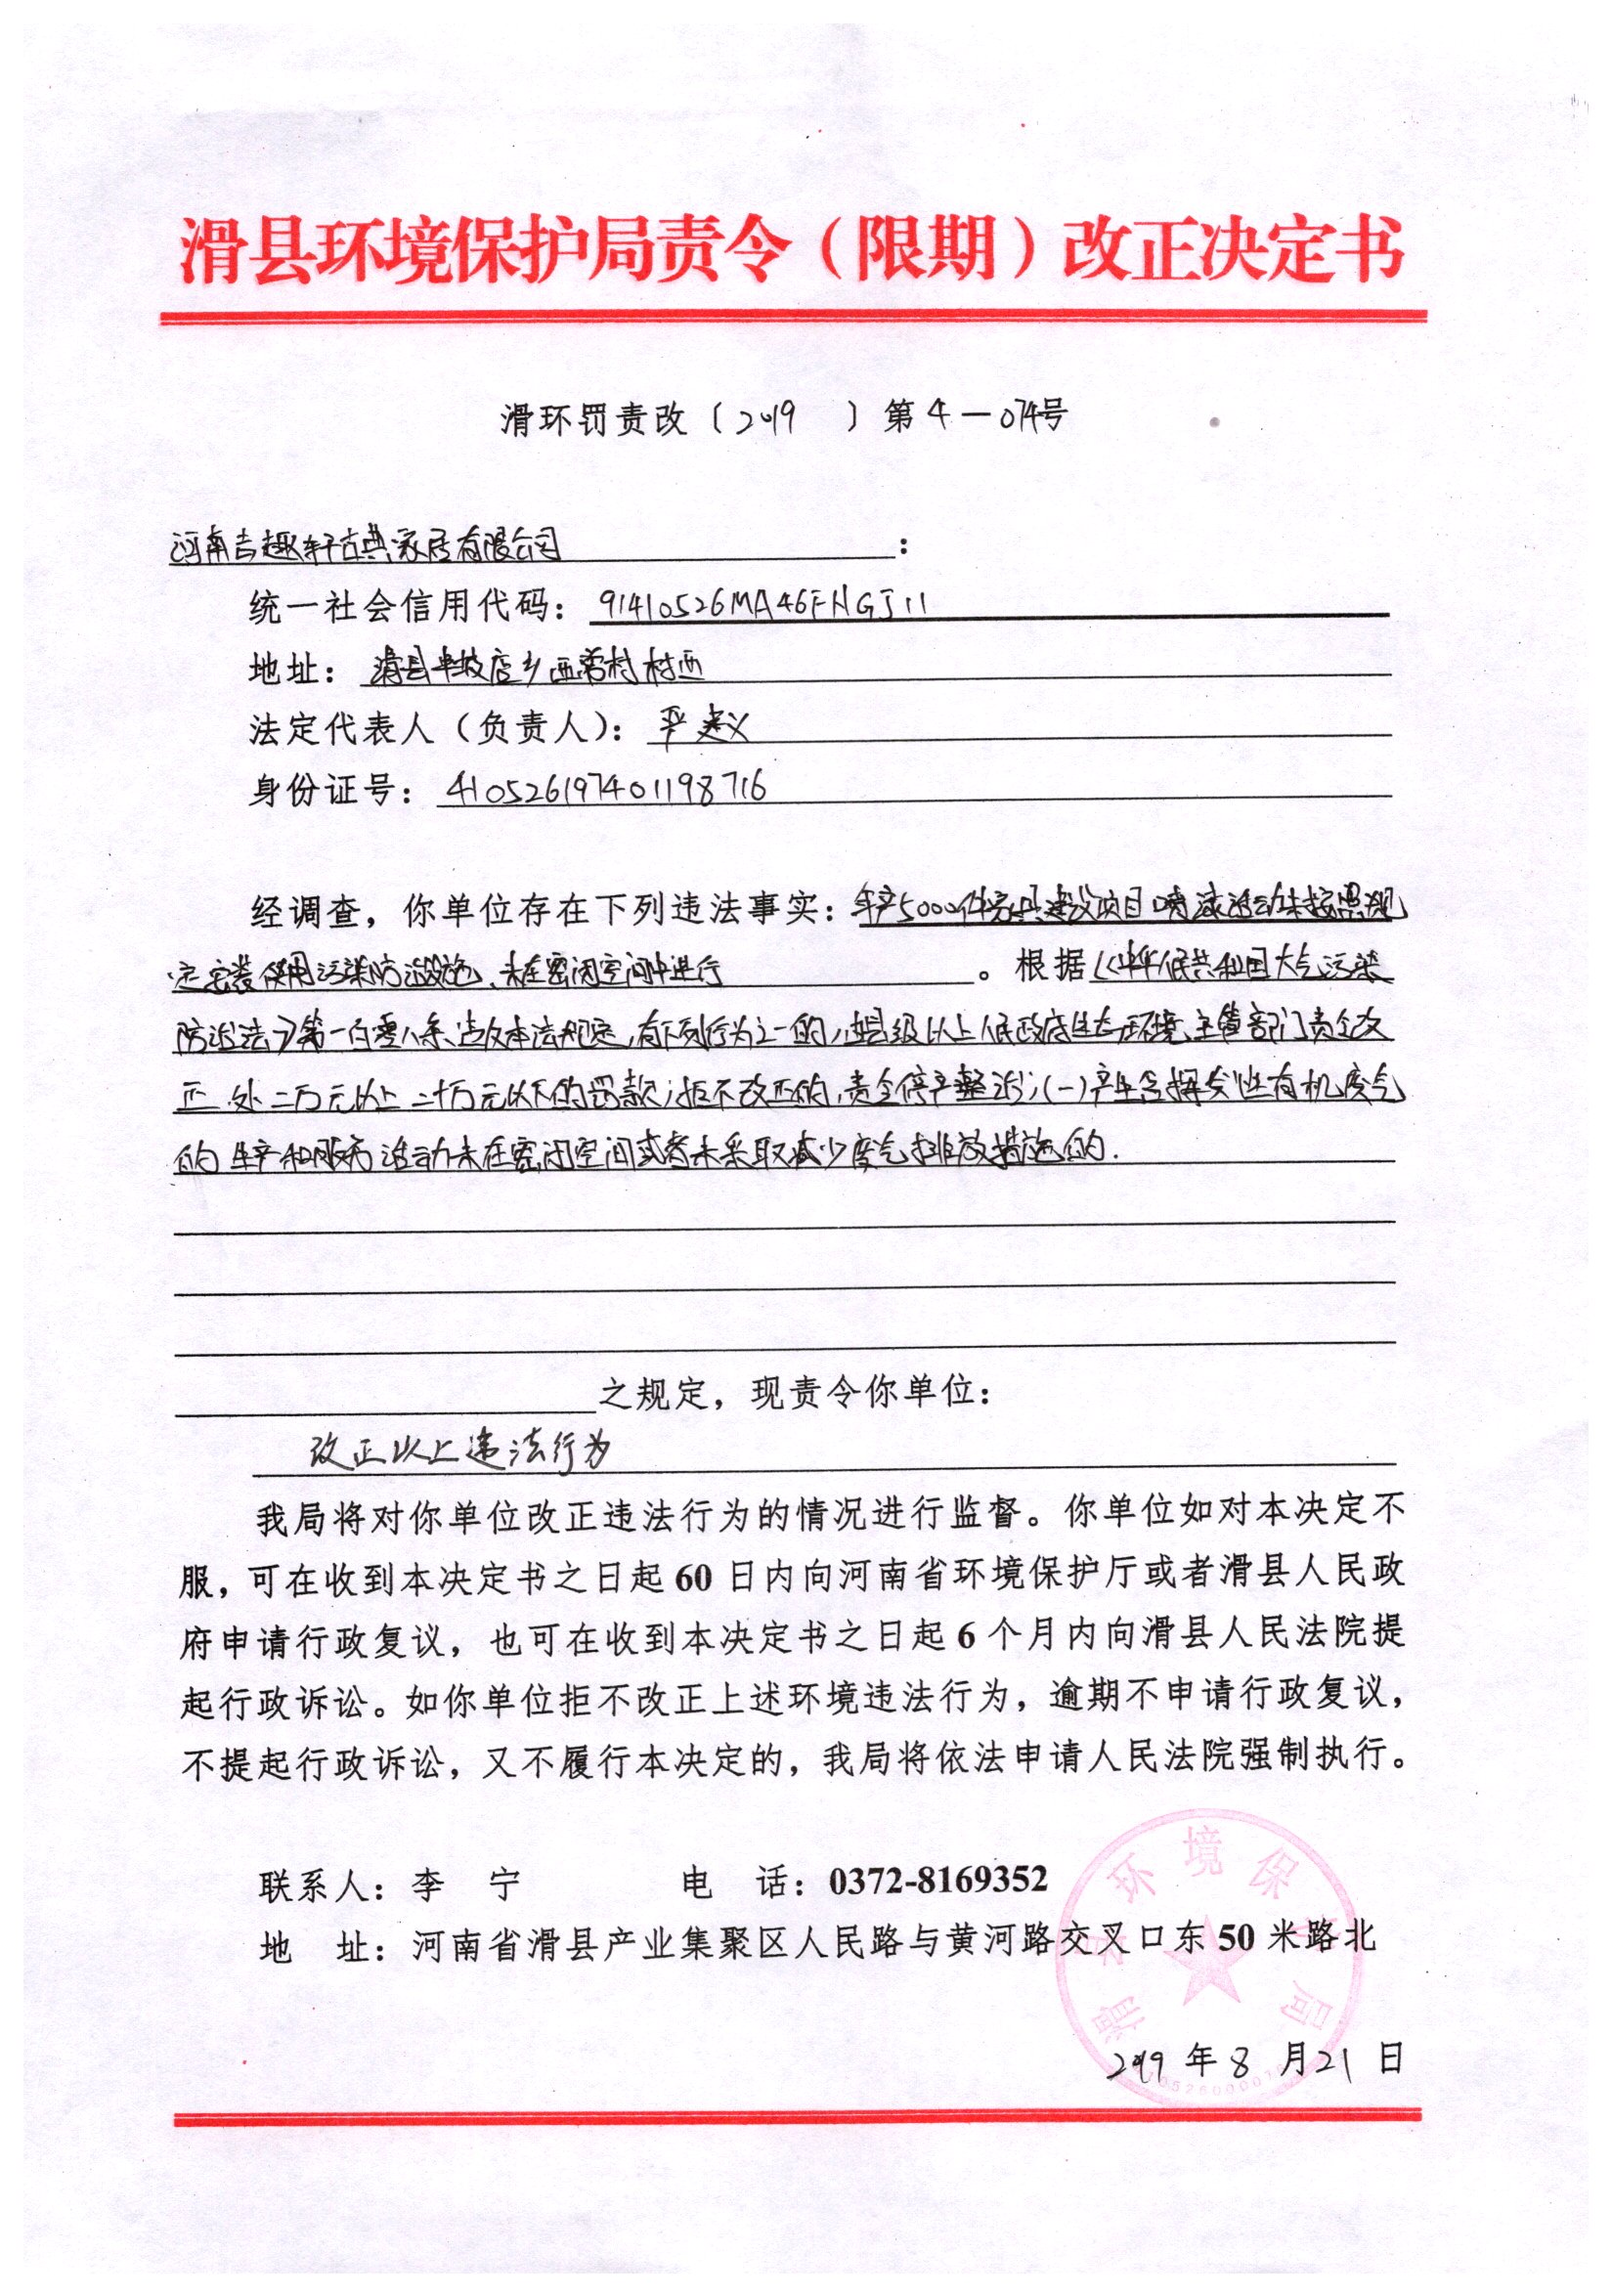 滑县环境保护局责令（限期）改正决定书
滑环罚责改〔2019 〕第4-074号
河南吉趣轩古典家居有限公司：
统一社会信用代码：91410526MA46FHGJ11
地址：滑县半坡店乡西常村村西
法定代表人（负责人）：平建义
身份证号：410526197401198716
经调查，你单位存在下列违法事实：年产5000件家具建设项目喷漆活动未按照规
定安装使用污染防治设施、未在密闭空间中进行。根据《中华人民共和国大气污染
防治法》第一百零八条、违反本法规定，有下列行为之一的，由县级以上人民政府生态环境主管部门责令改
正，处二万元以上二十万元以下的罚款；拒不改正的，责令停产整治；（一）产生含挥发性有机废气
的生产和服务活动未在密闭空间或者未采取减少废气排放措施的.
之规定，现责令你单位：
改正以上违法行为
我局将对你单位改正违法行为的情况进行监督。你单位如对本决定不
服，可在收到本决定书之日起60日内向河南省环境保护厅或者滑县人民政
府申请行政复议，也可在收到本决定书之日起6个月内向滑县人民法院提
起行政诉讼。如你单位拒不改正上述环境违法行为，逾期不申请行政复议，
不提起行政诉讼，又不履行本决定的，我局将依法申请人民法院强制执行。
联系人：李 宁 电 话：0372-8169352
地 址：河南省滑县产业集聚区人民路与黄河路交叉口东50米路北
滑县环境保护局
2019年8月21日